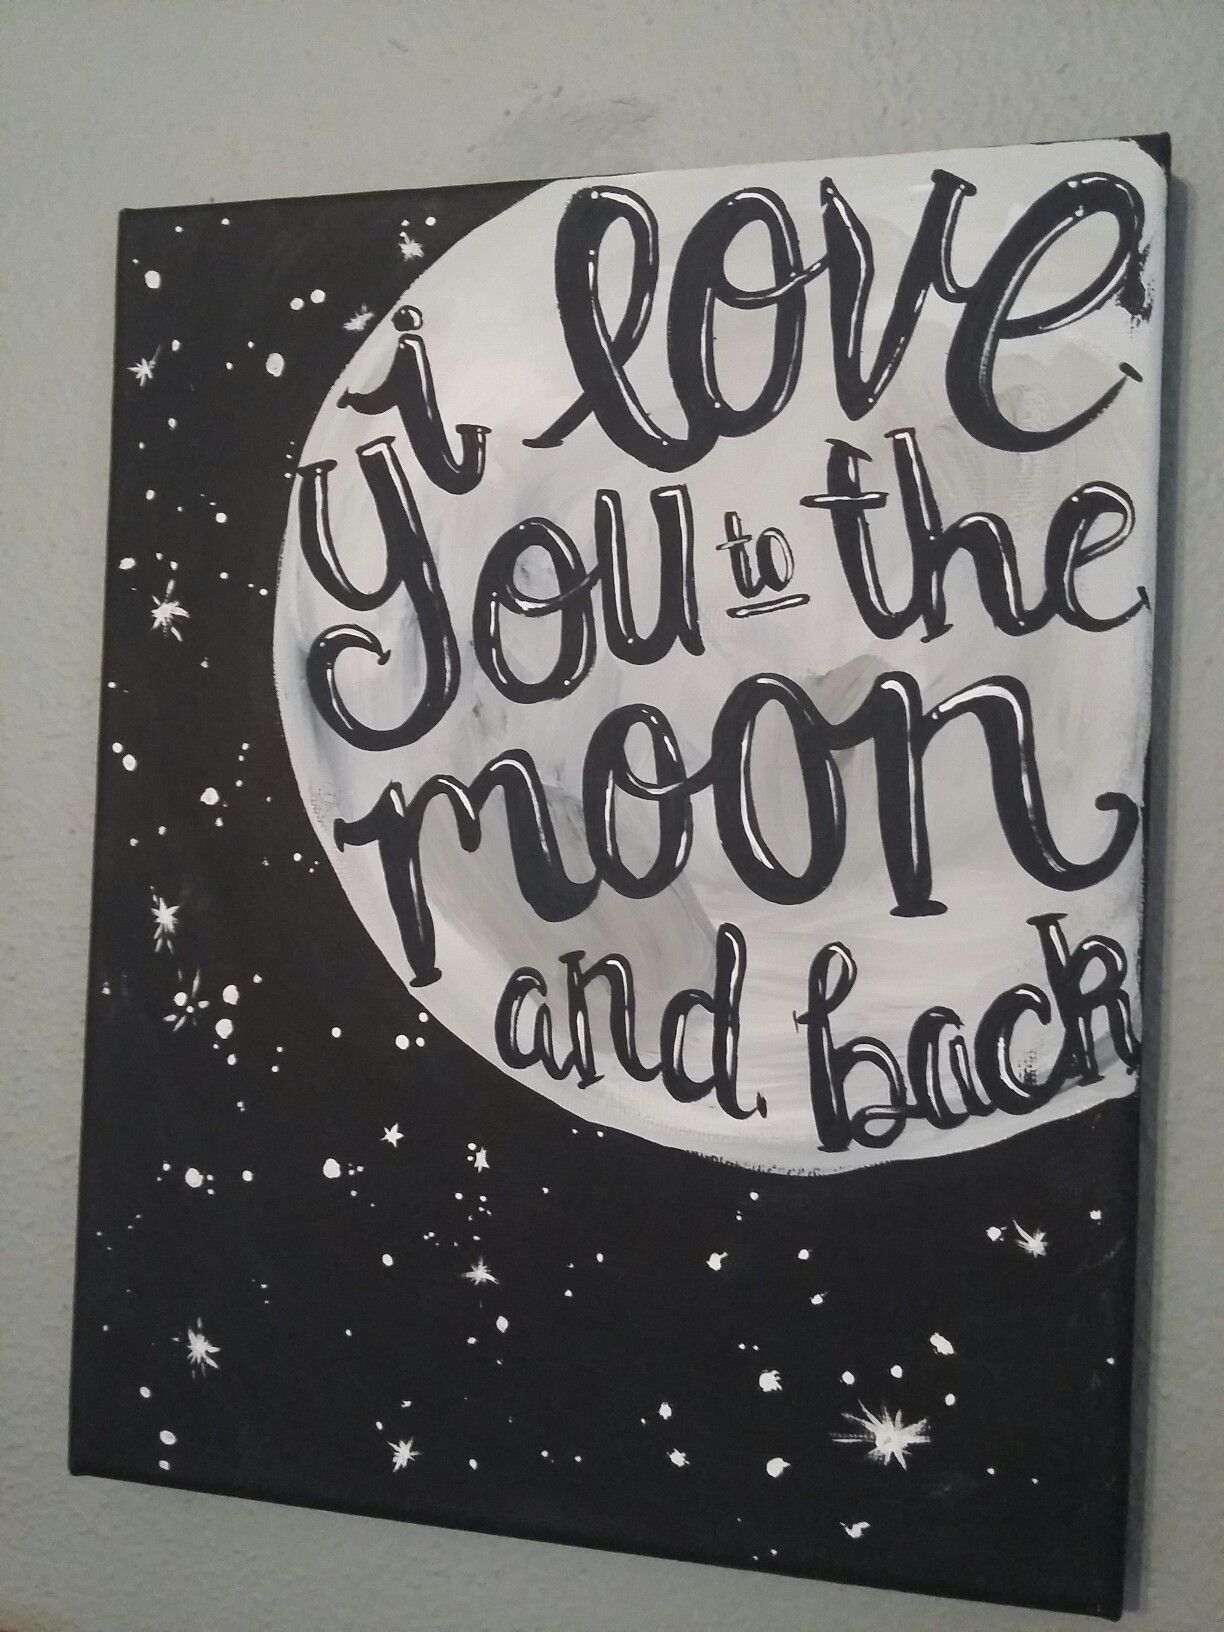 i love
you to the
moon
and back